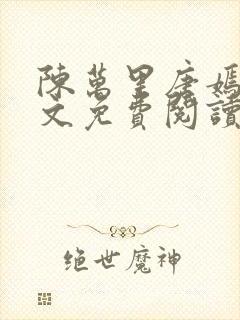 陳萬里唐嫣
文免費閱讀
绝世魔神